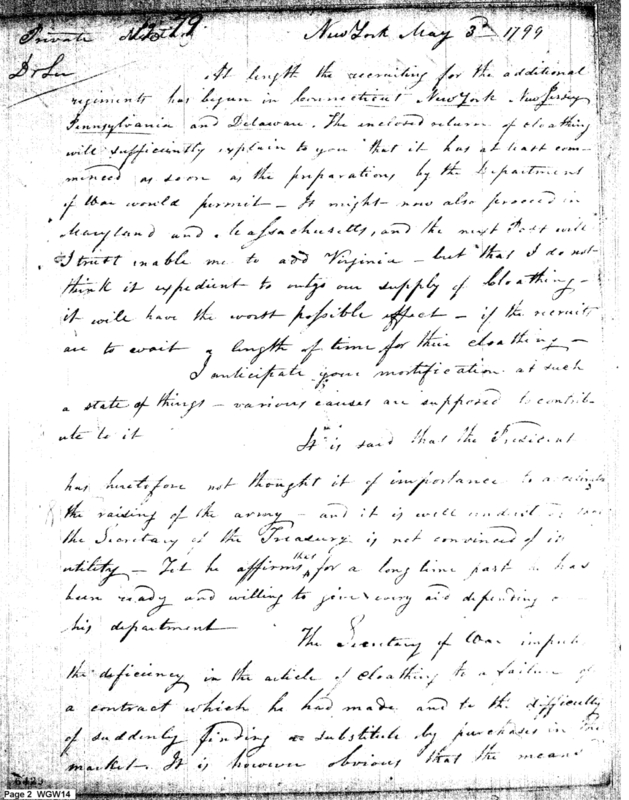 Private New York May 3d 1799
Dr Sir
At length the recruiting for the additional
regiments has begun in Connecticut New York New Jersey
Pennsylvania and Delaware. The inclosed return of cloathing
will sufficiently explain to you that it has at least com-
menced as soon as the preparations by the Department
of War would permit – It might now also proceed in
Maryland and Massachusetts, and the next Post will
I trust enable me to add Virginia – but that I do not
think it expedient to outgo our supply of Cloathing –
it will have the worst possible effect – if the recruits
are to wait a length of time for their cloathing –
I anticipate your mortification at such
a state of things – various causes are supposed to contrib-
ute to it
It is said that the President
has heretofore not thought it of importance to
the raising of the army – and it is well
the Secretary of the Treasury is not convinced of its
utility – Yet he affirms that for a long time past he has
been ready and willing to give every aid depending
his department
The Secretary of War
the deficiency in the article of cloathing to a failure of
a contract which he had made and to the difficulty
of suddenly finding a substitute by purchases in the
market. It is however obvious that the means
6423
Page 2 WGW14